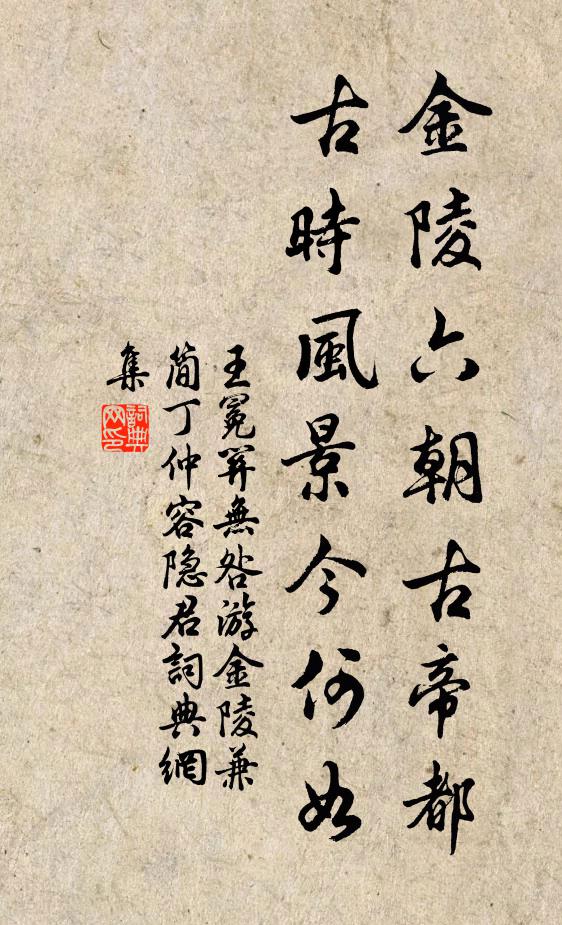 金陵六朝古帝都
古時風景今何如
王冕筭無咎游金陵兼
簡丁仲容隐君詞典網
集
詞典
网印